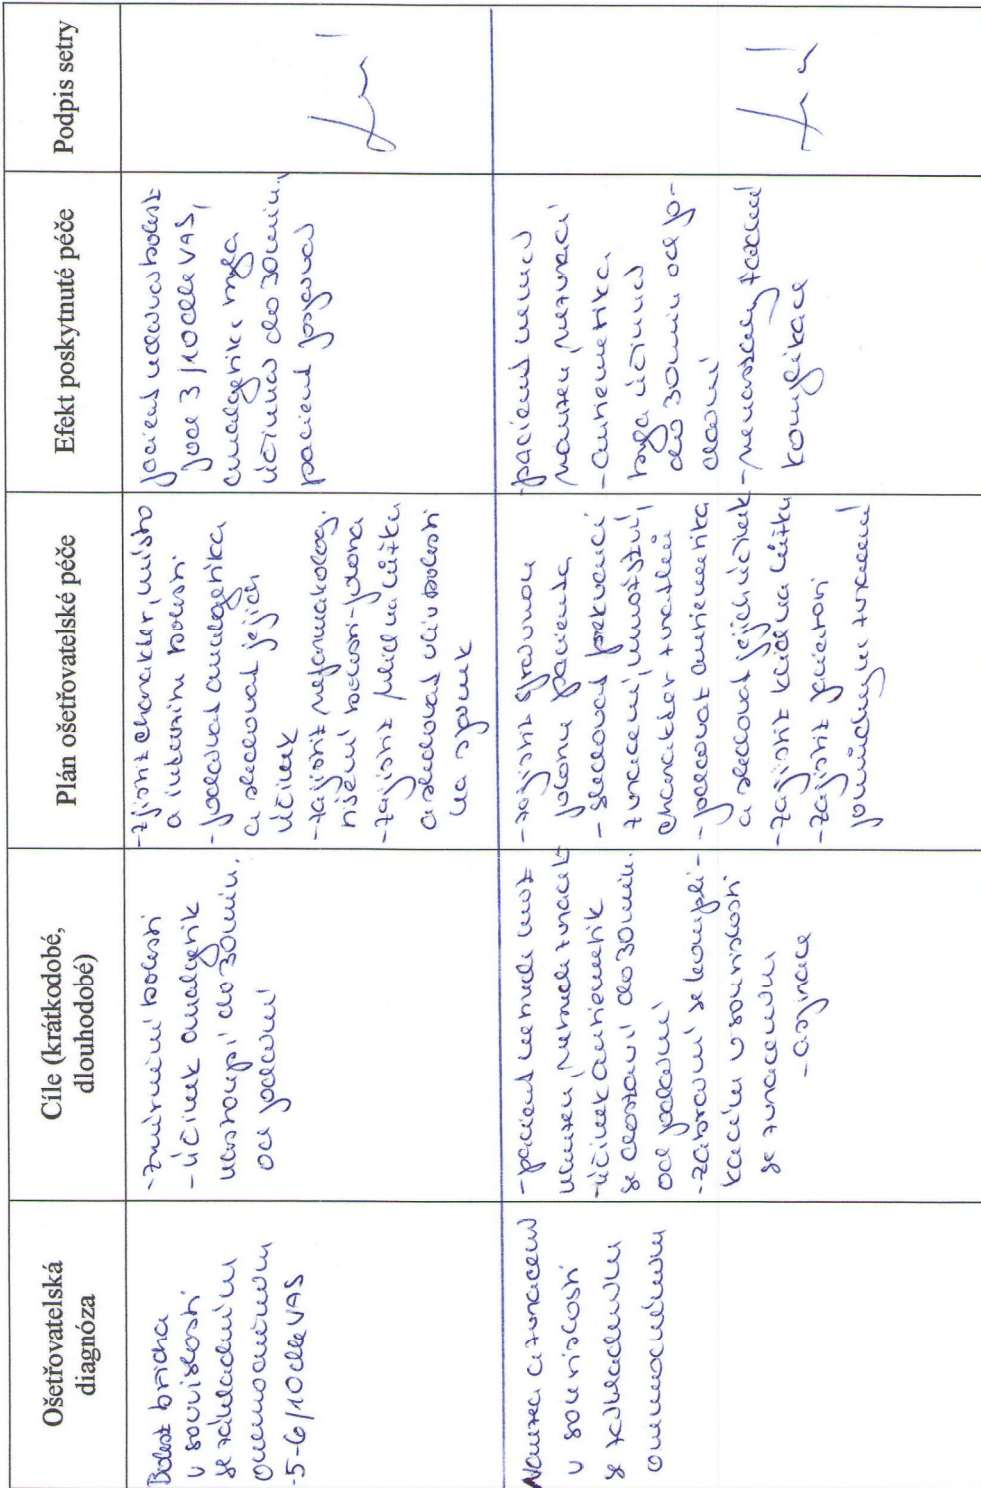 Ošetřovatelská
diagnóza
Cíle (krátkodobé,
dlouhodobé)
Plán ošetřovatelské péče
Efekt poskytnuté péče
Podpis setry
Bolest břicha
v souvislosti
se základním
onemocněním
-5-6/10 dle VAS
-zmírnění bolesti
-účinek analgetik
nastoupí do 30 min.
od podání
-zjistit charakter, místo
a intenzitu bolesti
-podávat analgetika
a sledovat jejich
účinek
-zajistit nefarmakolog.
tišení bolesti-poloha
-zajistit klid na lůžku
a sledovat vliv bolesti
na spánek
pacient udával bolest
pod 3/10 dle VAS,
analgetika byla
účinná do 30 min.,
pacient pospával
Nauzea a zvracení
v souvislosti
se základním
onemocněním
-pacient nebude mít
nauzeu, nebude zvracet
-účinek antiemetik
se dostaví do 30 min.
od podání
-zabránění se kompli-
kacím v souvislosti
se zvracením
-aspirace
-zajistit správnou
polohu pacienta
-sledovat frekvenci
zvracení, množství,
charakter zvratků
-podávat antiemetika
a sledovat jejich účinek
-zajistit klid na lůžku
-zajistit pacientovi
pomůcky ke zvracení
-pacient neměl
nauzeu, nezvrací
-antiemetika
byla účinná
do 30 min od po-
dání
-nenastaly žádné
komplikace